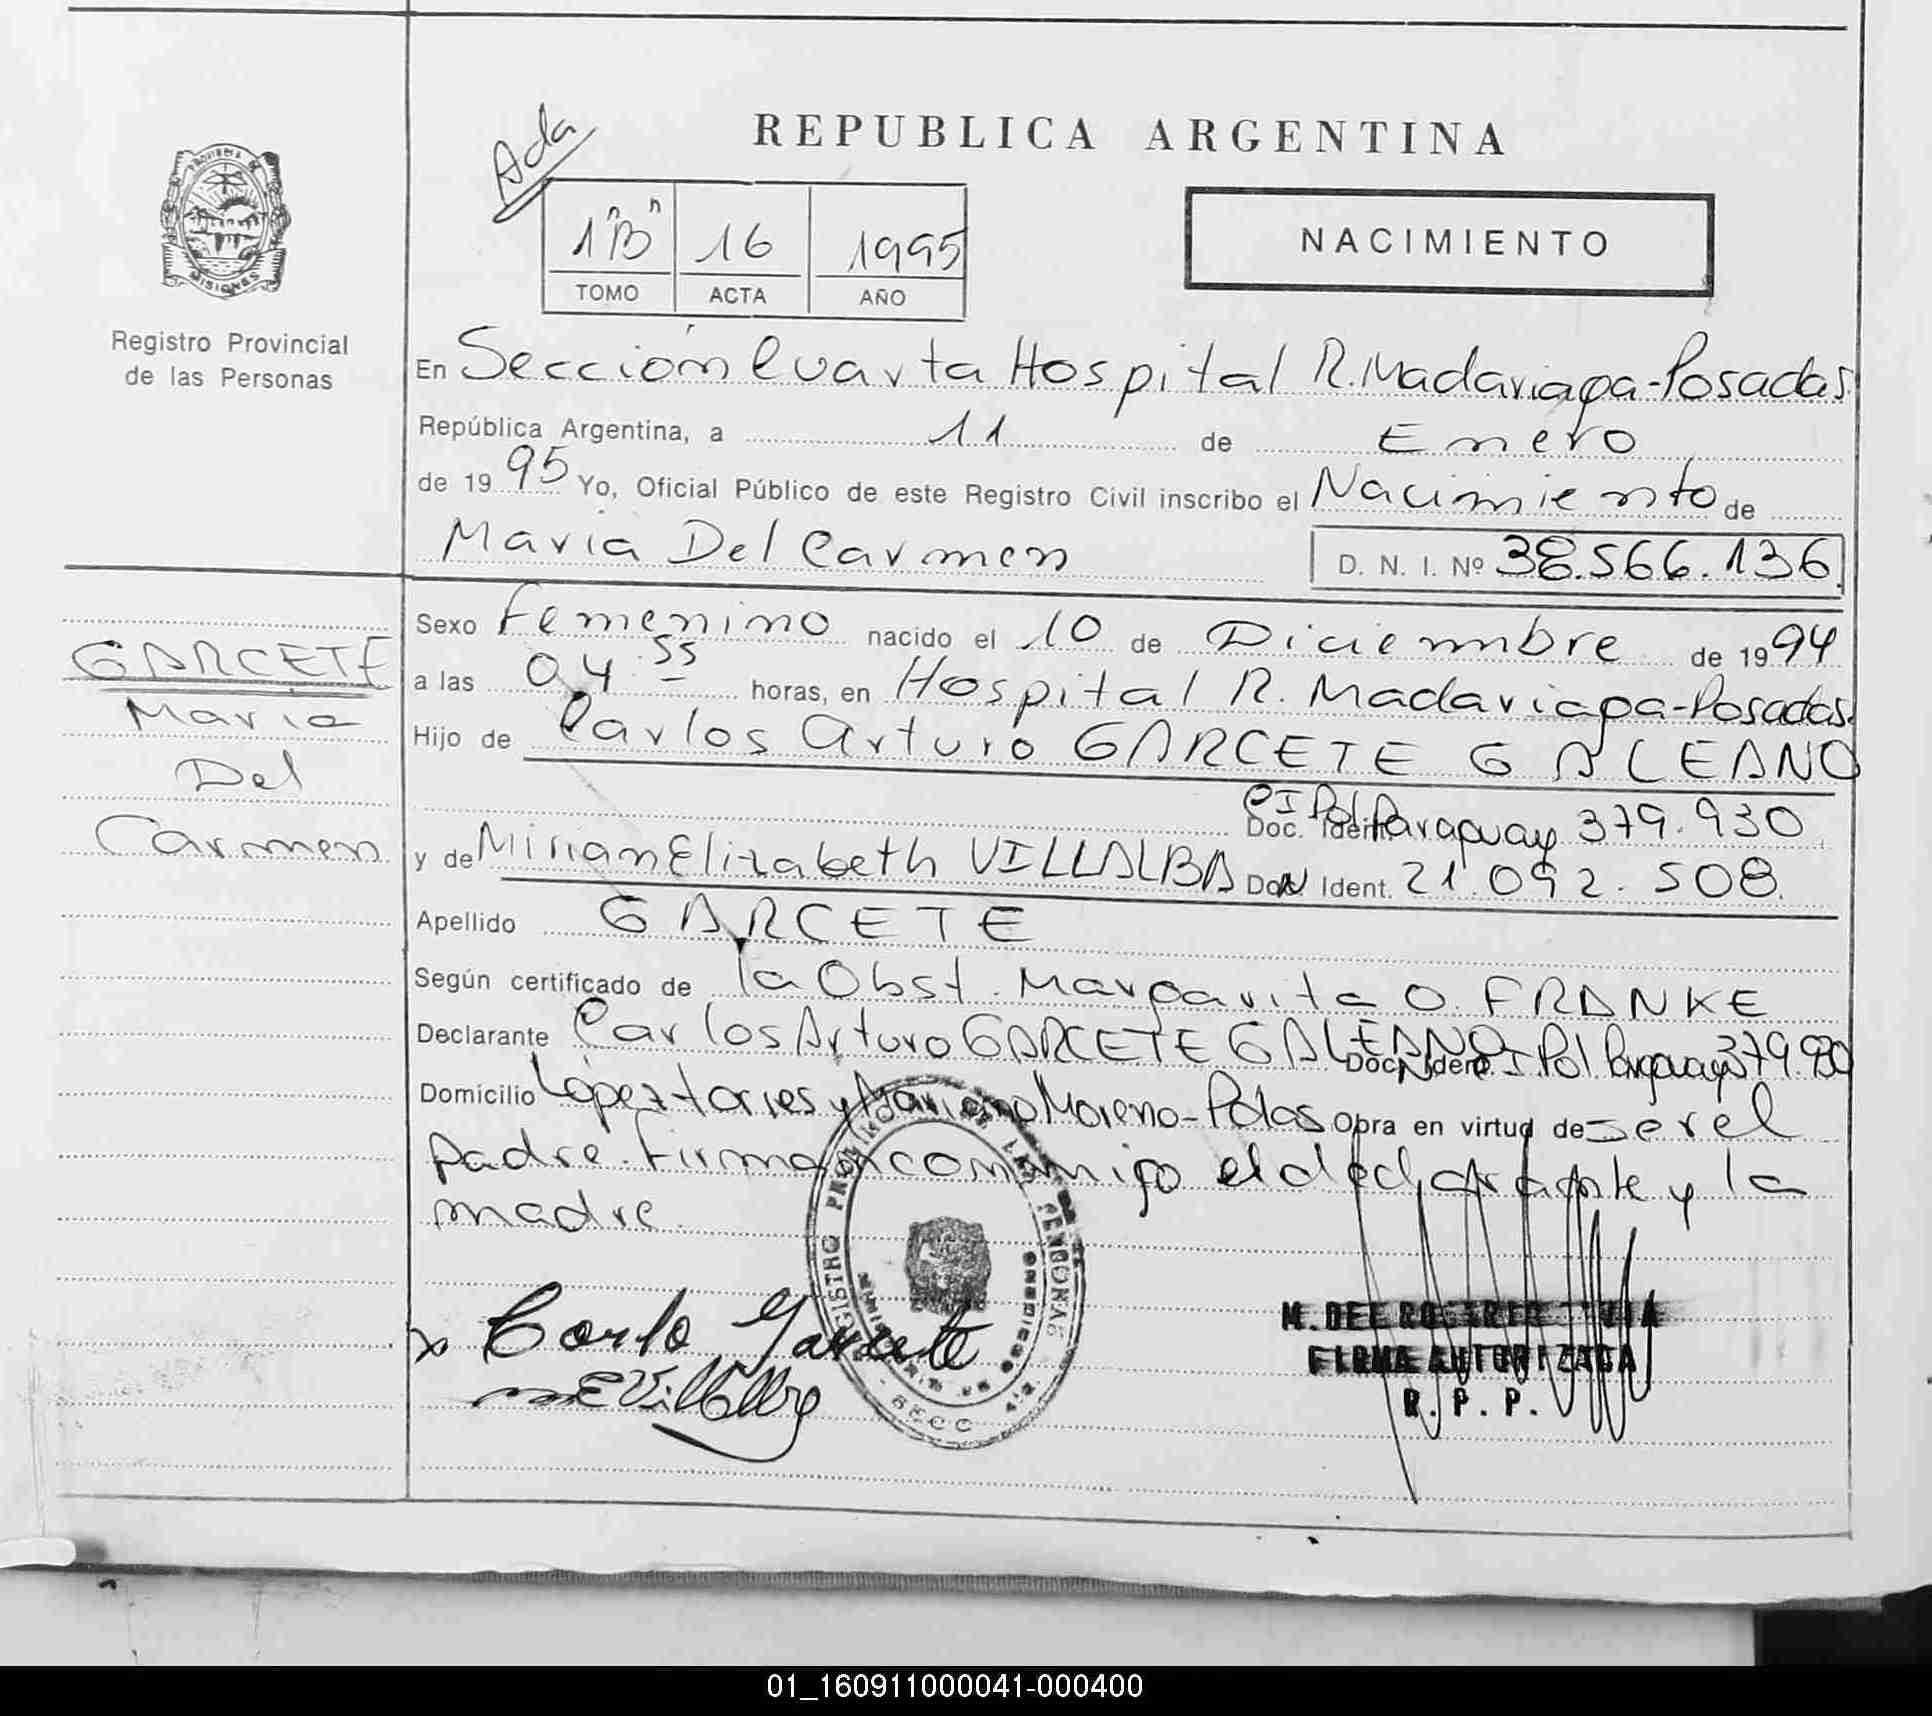 REPUBLICA ARGENTINA
Ada
1"B" 16 1995
TOMO ACTA AÑO
NACIMIENTO
PROVINCIA DE
MISIONES
Registro Provincial
de las Personas
En Sección Cuarta Hospital R. Madariaga-Posadas.
República Argentina, a 11 de Enero
de 1995 Yo, Oficial Público de este Registro Civil inscribo el Nacimiento de
Maria Del Carmen D. N. I. Nº 38.566.136.
GARCETE
Maria
Del
Carmen
Sexo Femenino nacido el 10 de Diciembre de 1994
a las 04:55 horas, en Hospital R. Madariaga-Posadas.
Hijo de Carlos Arturo GARCETE GALEANO
Doc. Ident. CI Pol Paraguay 379.930
y de Mirian Elizabeth VILLALBA Doc. Ident. 21.092.508.
Apellido GARCETE
Según certificado de la Obst. Margarita O. FRANKE
Declarante Carlos Arturo GARCETE GALEANO Doc. Ident. CI Pol Paraguay 379.930
Domicilio López torres y Mariano Moreno-Pdas Obra en virtud de ser el
padre. Firman conmigo el declarante y la
madre.
x Carlo Garcete
M E Villalba
M. DEL ROSARIO
FIRMA AUTORIZADA
R. P. P.
01_160911000041-000400